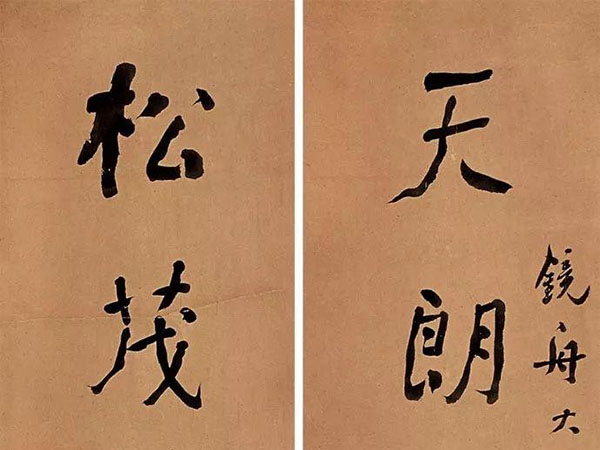 天朗
鏡舟大
松茂